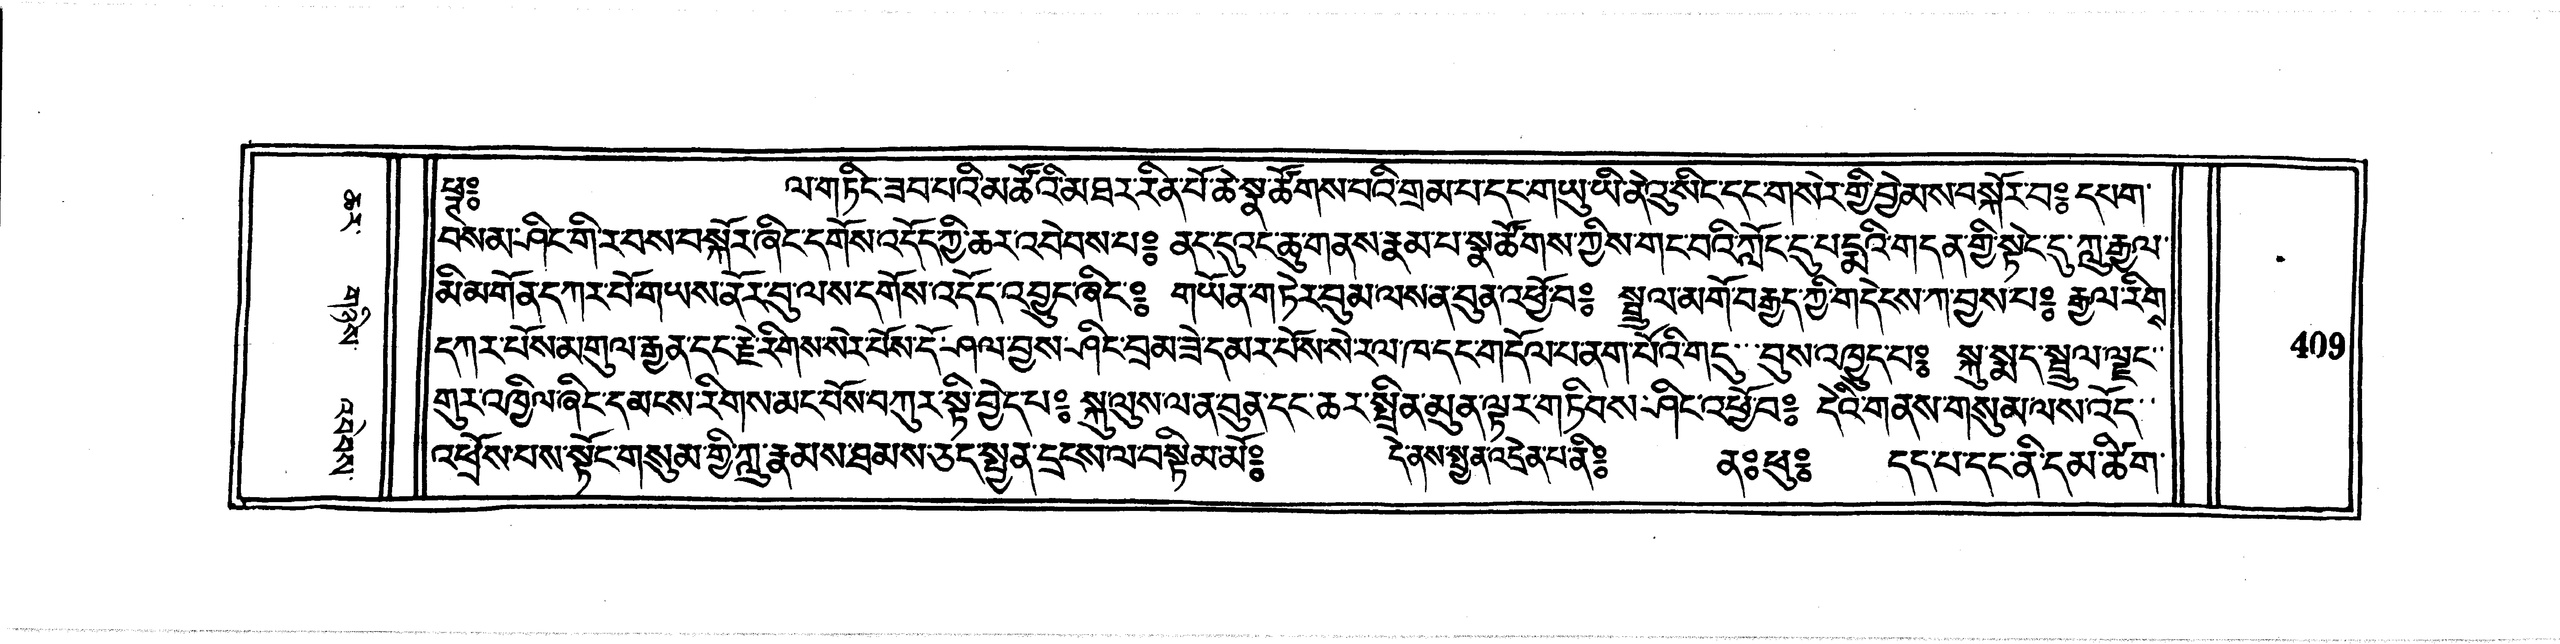 ཕྲྀ༔ ལ་གཏིང་ཟབ་པའི་མཚོའི་མཐར་རིན་པོ་ཆེ་སྣ་ཚོགས་པའི་གྲམ་པ་དང་གཡུ་ཡི་ནེའུ་སིང་དང་གསེར་གྱི་བྱེ་མས་བསྐོར་བ༔ དཔག་
བསམ་ཤིང་གི་ར་བས་བསྐོར་ཞིང་དགོས་འདོད་ཀྱི་ཆར་འབེབས་པ༔ ནང་དྭངས་ཆུ་གནས་རྣམ་པ་སྣ་ཚོགས་ཀྱིས་གང་བའི་ཀློང་དུ་པདྨའི་གདན་གྱི་སྟེང་དུ་ཀླུ་རྒྱལ་
མི་མགོན་དཀར་པོ་གཡས་ནོར་བུ་ལས་དགོས་འདོད་འབྱུང་ཞིང་༔ གཡོན་གཏེར་བུམ་ལས་ན་བུན་འཕྱོ་བ༔ སྦྲུལ་མགོ་བརྒྱད་ཀྱི་གདེངས་ཀ་བྱས་པ༔ རྒྱལ་རིགྶ་
དཀར་པོས་མགུལ་རྒྱན་དང་རྗེ་རིགས་སེར་པོས་དོ་ཤལ་བྱས་ཤིང་བྲམ་ཟེ་དམར་པོས་སེ་རལ་ཁ་དང་གདོལ་པ་ནག་པོའི་གདུ་བུས་འཁྱུད་པ༔ སྐུ་སྨད་སྦྲུལ་ལྗང་
གུར་འཁྱིལ་ཞིང་དམངས་རིགས་མང་པོས་བཀུར་སྟི་བྱེད་པ༔ སྐུ་ལུས་ལ་ན་བུན་དང་ཆར་སྤྲིན་མུན་ལྟར་གཏིབས་ཤིང་འཕྱོ་བ༔ དེའི་གནས་གསུམ་ལས་འོད་
འཕྲོས་པས་སྟོང་གསུམ་གྱི་ཀླུ་རྣམས་ཐམས་ཅད་སྤྱན་དྲངས་ལ་བསྟིམ་མོ༔ དེ་ནས་སྤྱན་འདྲེན་པ་ནི༔ ན༔ཕུ༔ དད་པ་དང་ནི་དམ་ཚིག་
ཆར་ གཉིས་ འབེབས་
409